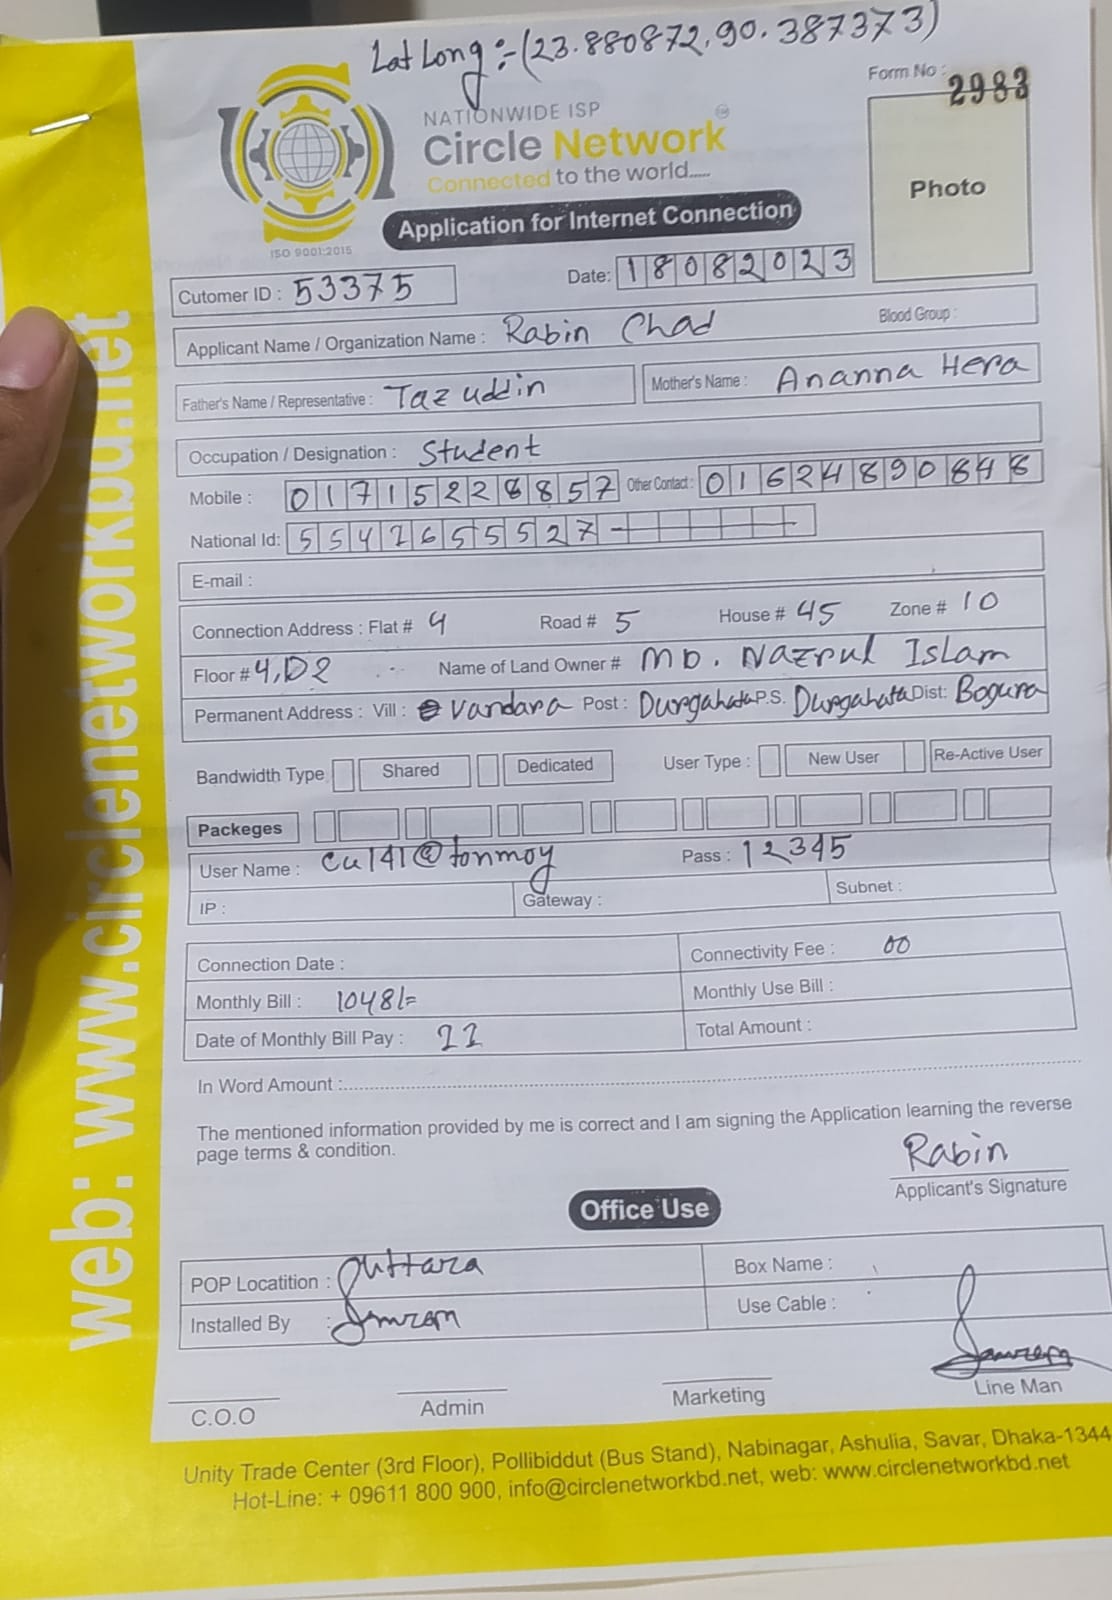 Lat Long :- (23.880872, 90.387373)
Form No : 2983
NATIONWIDE ISP
Circle Network
Connected to the world.....
Photo
Application for Internet Connection
ISO 9001:2015
Cutomer ID : 53375
Date: 18082023
Applicant Name / Organization Name : Rabin Chad Blood Group :
Father's Name / Representative : Tazuddin Mother's Name : Ananna Hera
Occupation / Designation : Student
Mobile : 01715228857 Other Contact : 01624890848
National Id: 5547655527
E-mail :
Connection Address : Flat # 4 Road # 5 House # 45 Zone # 10
Floor # 4,D2 Name of Land Owner # MD. Nazrul Islam
Permanent Address : Vill : Vandara Post : Durgahata P.S. Durgahata Dist: Bogura
Bandwidth Type Shared Dedicated User Type : New User Re-Active User
Packeges
User Name : cu141@tonmoy Pass : 12345
IP : Gateway : Subnet :
Connection Date : Connectivity Fee : 00
Monthly Bill : 1048/= Monthly Use Bill :
Date of Monthly Bill Pay : 22 Total Amount :
In Word Amount :
The mentioned information provided by me is correct and I am signing the Application learning the reverse
page terms & condition.
Rabin
Applicant's Signature
Office Use
POP Locatition : Uttara Box Name :
Installed By : Use Cable :
C.O.O Admin Marketing Line Man
Unity Trade Center (3rd Floor), Pollibiddut (Bus Stand), Nabinagar, Ashulia, Savar, Dhaka-1344
Hot-Line: + 09611 800 900, info@circlenetworkbd.net, web: www.circlenetworkbd.net
web: www.circlenetworkbd.net